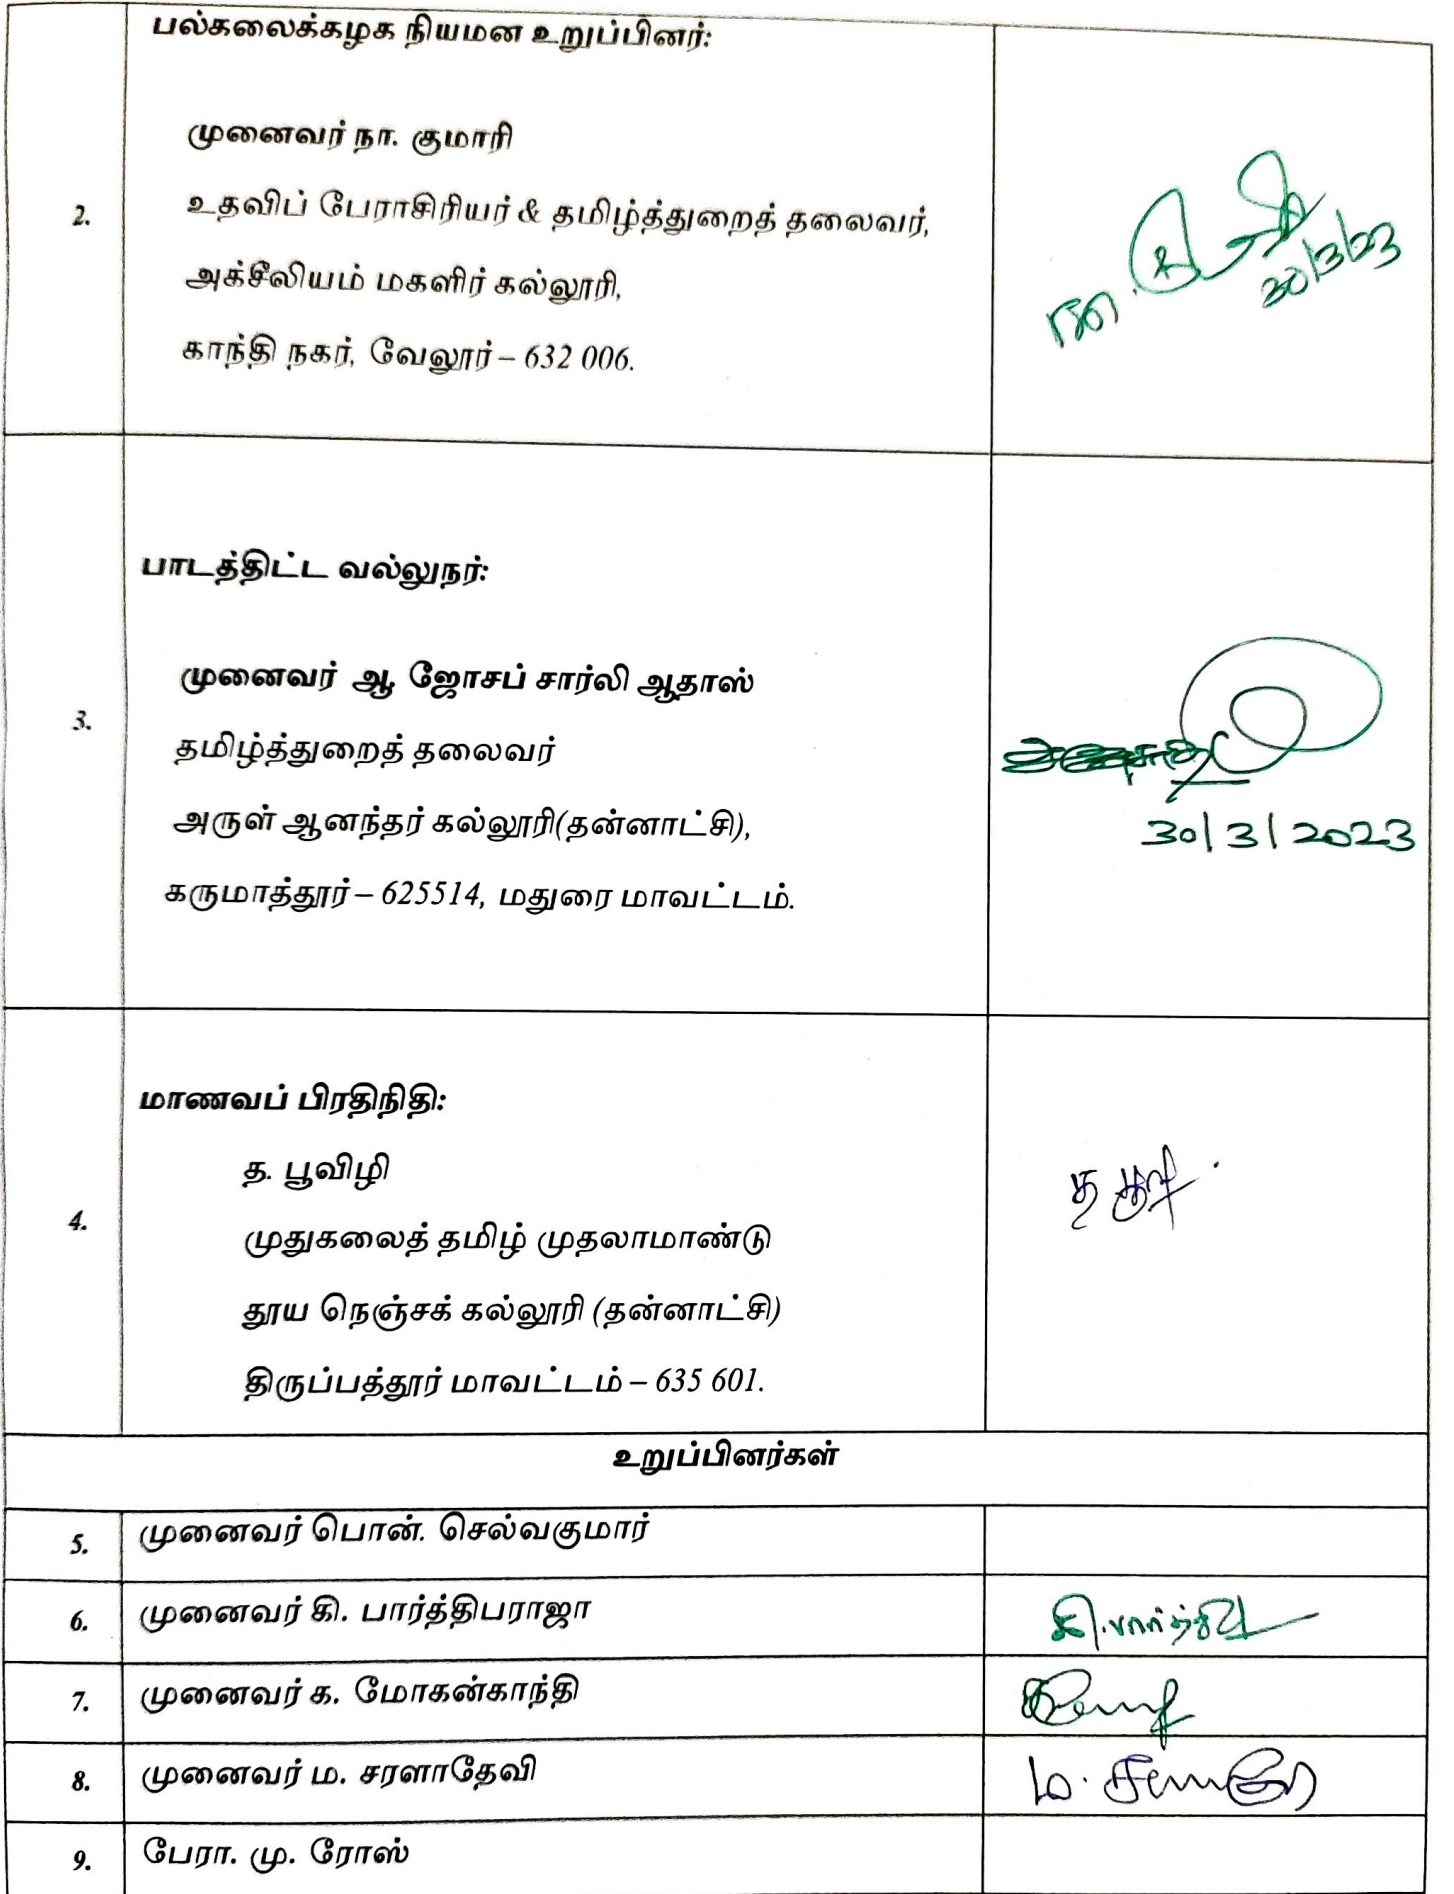 பல்கலைக்கழக நியமன உறுப்பினர்:
முனைவர் நா. குமாரி
2.
உதவிப் பேராசிரியர் & தமிழ்த்துறைத் தலைவர்,
அக்சீலியம் மகளிர் கல்லூரி,
காந்தி நகர், வேலூர் – 632 006.
நா. கு
30/3/23
பாடத்திட்ட வல்லுநர்:
முனைவர் ஆ. ஜோசப் சார்லி ஆதாஸ்
3.
தமிழ்த்துறைத் தலைவர்
அருள் ஆனந்தர் கல்லூரி(தன்னாட்சி),
கருமாத்தூர் – 625514, மதுரை மாவட்டம்.
30/3/2023
மாணவப் பிரதிநிதி:
த. பூவிழி
4.
முதுகலைத் தமிழ் முதலாமாண்டு
தூய நெஞ்சக் கல்லூரி (தன்னாட்சி)
திருப்பத்தூர் மாவட்டம் – 635 601.
உறுப்பினர்கள்
5. முனைவர் பொன். செல்வகுமார்
6. முனைவர் கி. பார்த்திபராஜா
7. முனைவர் க. மோகன்காந்தி
8. முனைவர் ம. சரளாதேவி
9. பேரா. மு. ரோஸ்